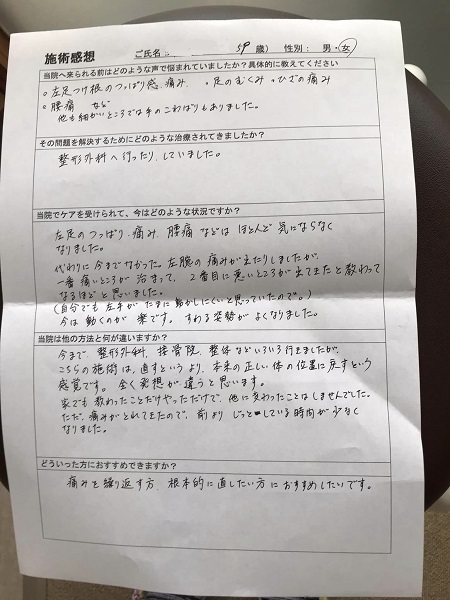 施術感想 ご氏名： 59 歳） 性別： 男・女
当院へ来られる前はどのような声で悩まれていましたか？具体的に教えてください
◦左足つけ根のつっぱり感、痛み ◦足のむくみ ◦ひざの痛み
◦腰痛 など
他も細かいところでは手のこわばりもありました。
その問題を解決するためにどのような治療されてきましたか？
整形外科へ行ったり、していました。
当院でケアを受けられて、今はどのような状況ですか？
左足のつっぱり、痛み、腰痛などはほとんど気にならなく
なりました。
代わりに今までなかった。左腕の痛みが出たりしましたが、
一番痛いところが治まって、2番目に悪いところが出てきたと教わって
なるほどと思いました。
(自分でも左手がたまに動かしにくいと思っていたので。)
今は動くのが楽です。すわる姿勢がよくなりました。
当院は他の方法と何が違いますか？
今まで、整形外科、接骨院、整体などいろいろ行きましたが、
こちらの施術は、直すというより、本来の正しい体の位置に戻すという
感覚です。全く発想が違うと思います。
家でも教わったことだけやっただけで、他に変わったことはしませんでした。
ただ、痛みがとれてきたので、前よりじっとしている時間が少なく
なりました。
どういった方におすすめできますか？
痛みを繰り返す方、根本的に直したい方におすすめしたいです。